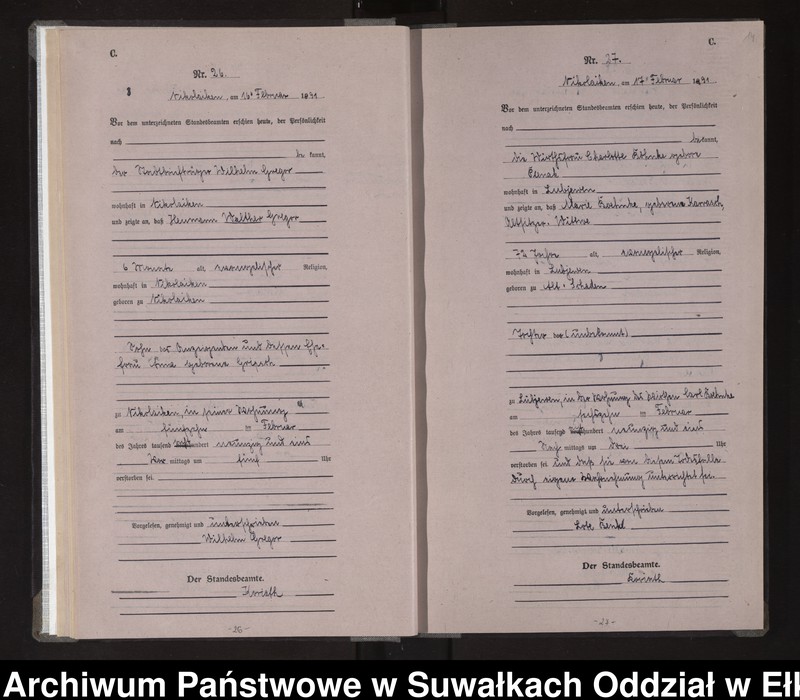 C.
Nr. 26.
Nikolaiken, am 16ten Februar 1891
Vor dem unterzeichneten Standesbeamten erschien heute, der Persönlichkeit
nach
be kannt,
der Wilhelm Gregor
wohnhaft in Nikolaiken
und zeigte an, daß Hermann Walther Gregor
6 Monate alt, evangelischer Religion,
wohnhaft in Nikolaiken
geboren zu Nikolaiken
Sohn des Anzeigenden und dessen Ehe-
frau geborene
zu Nikolaiken, in seiner Wohnung
am fünfzehn ten Februar
des Jahres tausend acht hundert neunzig und eins
Vor mittags um fünf Uhr
verstorben sei.
Vorgelesen, genehmigt und unterschrieben
Wilhelm Gregor
Der Standesbeamte.
-26-
C.
Nr. 27.
Nikolaiken, am 17ten Februar 1891
Vor dem unterzeichneten Standesbeamten erschien heute, der Persönlichkeit
nach
be kannt,
die Wirthsfrau Charlotte geborene
wohnhaft in Lubjewen
und zeigte an, daß Marie geborene
Altsitzer-Wittwe
72 Jahre alt, evangelischer Religion,
wohnhaft in Lubjewen
geboren zu Alt-Schaden
Tochter der (unbekannt)
zu Lubjewen, in der Wohnung des Wirthen Carl
am sechszehn ten Februar
des Jahres tausend acht hundert neunzig und eins
Nach mittags um drei Uhr
verstorben sei und daß sie von diesem Todesfalle
durch eigene Wahrnehmung unterrichtet sei.
Vorgelesen, genehmigt und unterschrieben
Der Standesbeamte.
-27-
Archiwum Państwowe w Suwałkach Oddział w Eł